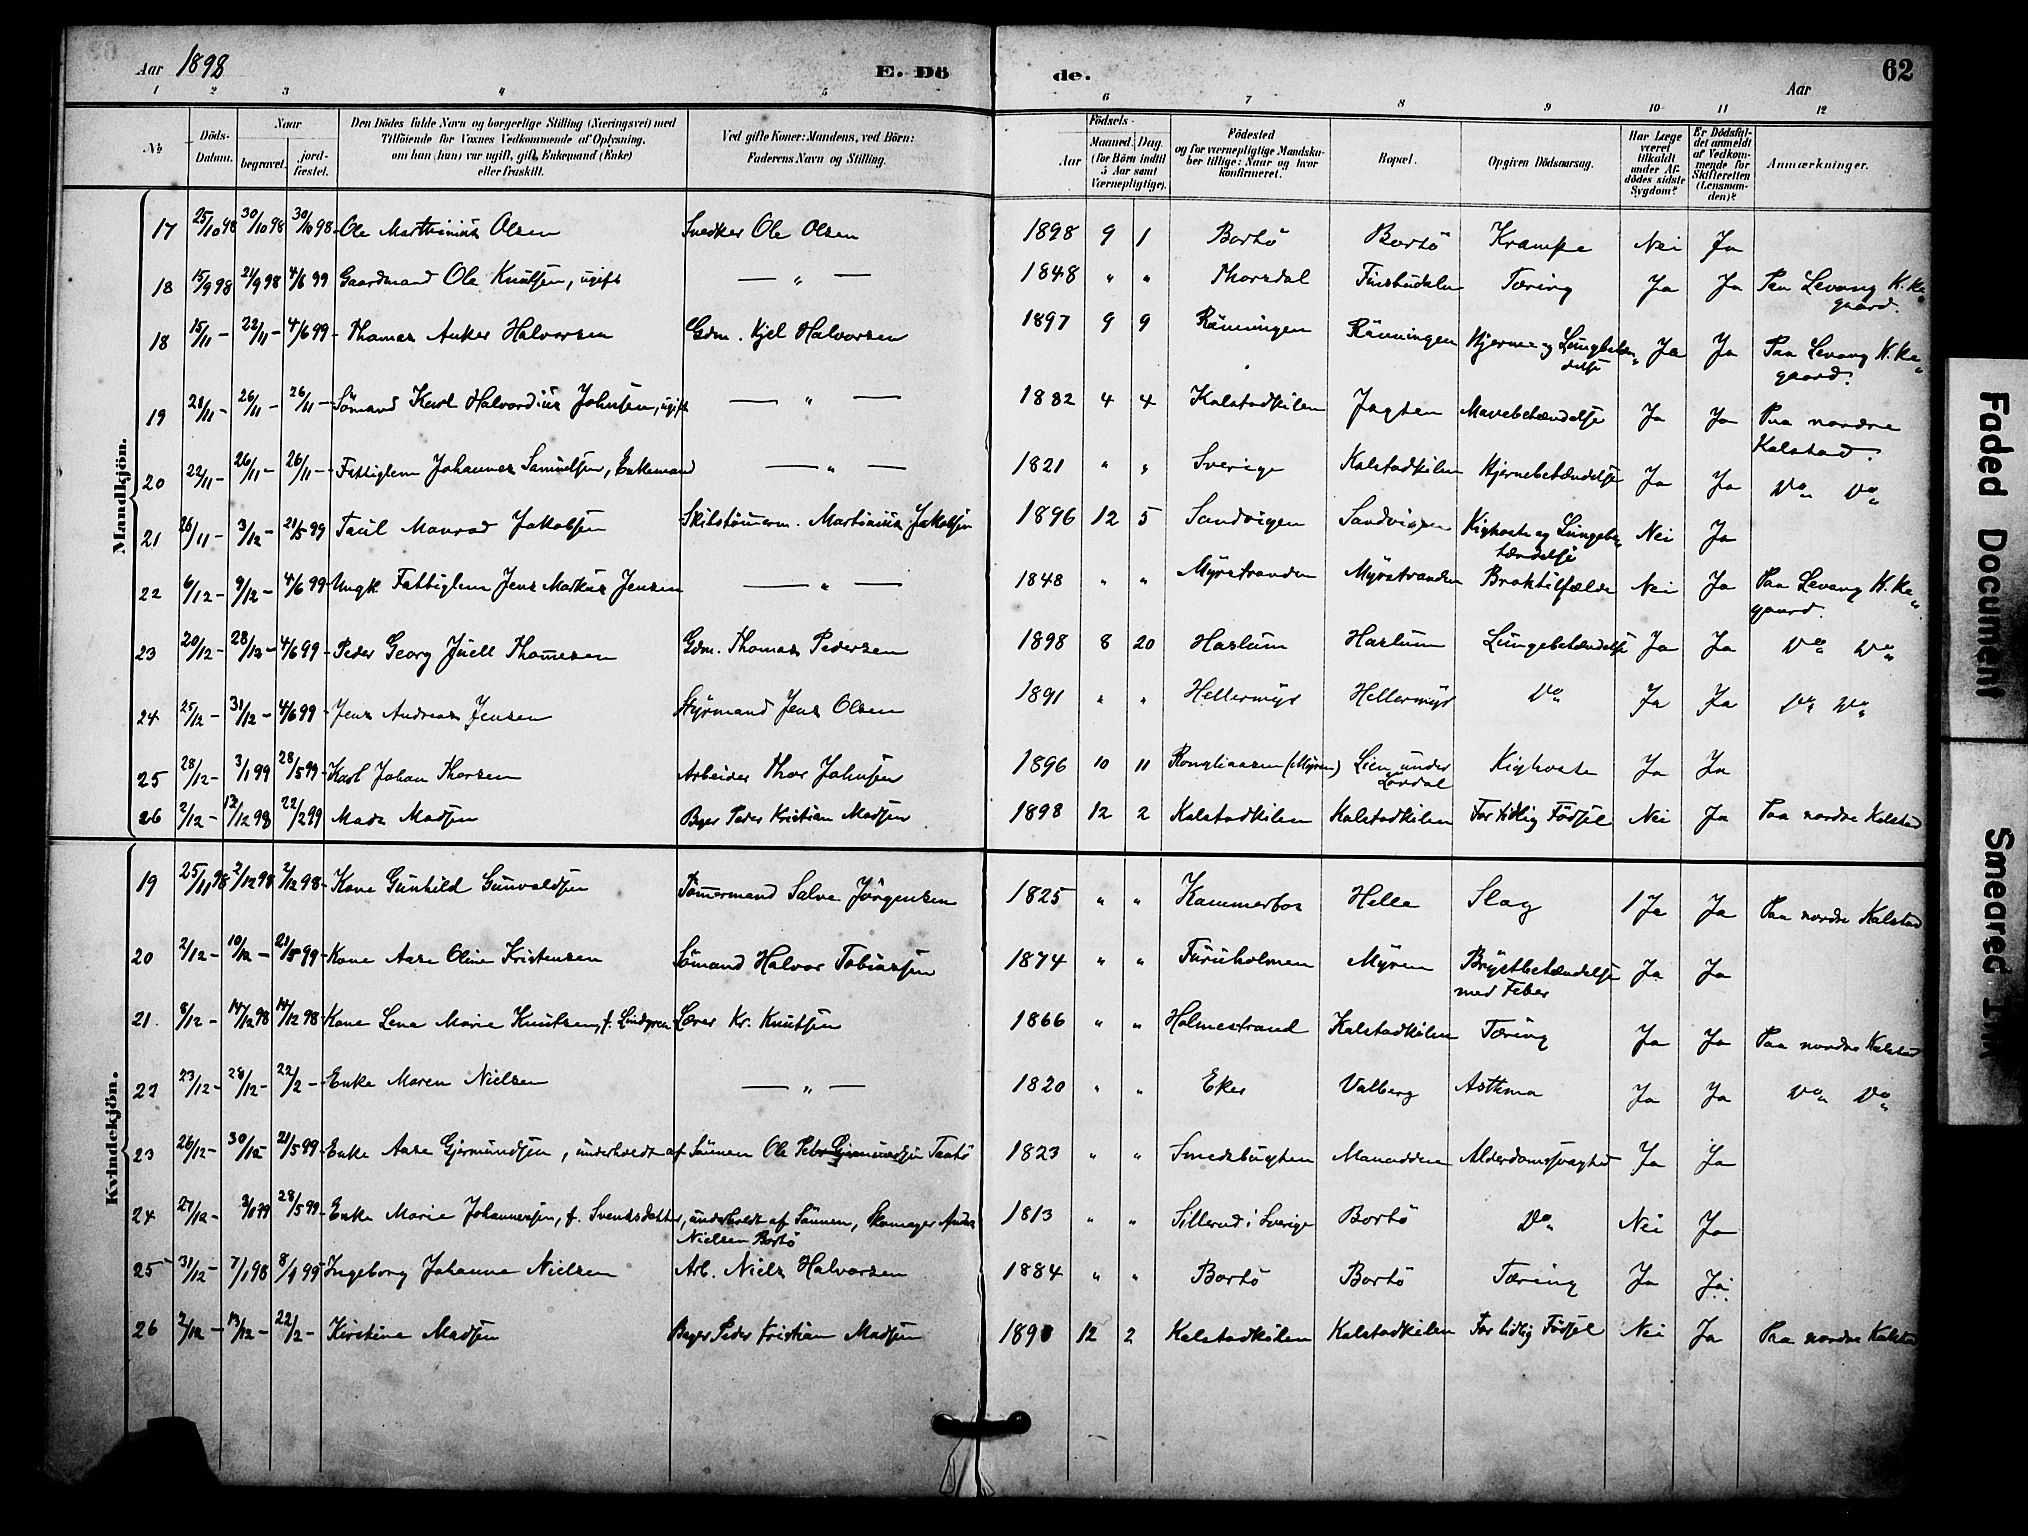 Aar 1898
E. Dö de.
Aar
62
1 2 3 4 5 6 7 8 9 10 11 12
No
Döds-Datum.
Naar
begravet.
jord-fæstet.
Den Dödes fulde Navn og borgerlige Stilling (Næringsvei) med
Tilföiende for Voxnes Vedkommende af Oplysning,
om han (hun) var ugift, gift, Enkemand (Enke)
eller fraskilt.
Ved gifte Koner: Mandens, ved Börn:
Faderens Navn og Stilling.
Födsels-
Aar
Maaned. Dag.
(for Börn indtil
5 Aar samt
Værnepligtige).
Födested
og for værnepligtige Mandska-
ber tillige: Naar og hvor
konfirmeret.
Bopæl.
Opgiven Dödsaarsag.
Har Læge
været
tilkaldt
under Af-
dödes sidste
Sygdom?
Er Dödsfal-
det anmeldt
af Vedkom-
mende for
Skifteretten
(Lensman-
den)?
Anmærkninger.
Mandkjön.
17 25/10 98 30/10 98 30/10 98 Ole Marthinius Olsen Snedker Ole Olsen 1898 9 1 Bortö Bortö Krampe Nei Ja
18 15/9 98 21/9 98 4/6 99 Gaardmand Ole Knutsen, ugift — " — 1848 " " Thorsdal Finsbudalen Tæring Ja Ja Paa Levang K.ke
gaard.
18 15/11 — 22/11 — 4/6 99 Thomas Anker Halvorsen Gdm. Kjel Halvorsen 1897 9 9 Rönningen Rönningen Hjerne og Lungebetæn
delse Ja Ja Paa Levang K.ke
gaard.
19 21/11 — 26/11 — 26/11 — Sömand Karl Halvordius Johnsen, ugift — " — 1882 4 4 Kalstadkilen Jagten Mavebetændelse Ja Ja Paa nordre
Kalstad.
20 22/11 — 26/11 — 26/11 — Fattiglem Johannes Samuelsen, Enkemand — " — 1821 " " Sverige Kalstadkilen Hjernebetændelse Ja Ja Do Do
21 26/11 — 3/12 — 21/5 99 Paul Monrad Jakobsen Skibstömerm. Martinius Jakobsen 1896 12 5 Sandvigen Sandvigen Kighoste og Lungebe
tændelse Nei Ja
22 6/12 — 9/12 — 4/6 99 Ungk Fattiglem Jens Markus Jensen — " — 1848 " " Myrstranden Myrstranden Broktilfælde Nei Ja Paa Levang K.ke
gaard.
23 20/12 — 28/12 — 4/6 99 Peder Georg Juell Thomesen Gdm. Thomas Pedersen 1898 8 20 Haslum Haslum Lungebetændelse Ja Ja Do Do
24 25/12 — 31/12 — 4/6 99 Jens Andreas Jensen Styrmand Jens Olsen 1891 " " Hellermyr Hellermyr Do Ja Ja Do Do
25 28/12 — 3/1 99 28/5 99 Karl Johan Thorsen Arbeider Thor Johnsen 1896 10 11 Rongliaasen (Myren) Lien under
Lövdal Kighoste Ja Ja
26 2/12 — 13/12 98 22/2 99 Mads Madsen Byger Peder Kristian Madsen 1898 12 2 Kalstadkilen Kalstadkilen For tidlig Födsel Nei Ja Paa nordre Kalstad
Kvindekjön.
19 25/11 98 2/12 98 2/12 98 Kone Gunhild Gunvoldsen Tömermand Salve Jörgensen 1825 " " Kammerfos Helle Slag 1 Ja Ja Paa nordre Kalstad
20 2/12 — 10/12 — 21/5 99 Kone Aase Oline Kristensen Sömand Halvor Tobiassen 1874 " " Furuholmen Myren Brystbetændelse
med Feber Ja Ja
21. 8/12 — 14/12 98 14/12 98 Kone Lena Marie Knutsen, f. Lindgren Lærer Kr. Knutsen 1866 " " Holmestrand Kalstadkilen Tæring Ja Ja Paa nordre Kalstad
22 23/12 — 28/12 — 22/2 — Enke Maren Nielsen — " — 1820 " " Eker Valberg Asthma Ja Ja Do Do
23 26/12 — 30/12 — 21/5 99 Enke Aase Gjermundsen, underholdt af Sönnen Ole Peter Gjermundsen Taatö 1823 " " Smedsbugten Manodden Alderdomssvaghed Ja Ja
24 27/12 — 3/1 99 28/5 99 Enke Marie Johannessen, f. Svendsdatter, underholdt af Sönnen, Skomager Anders
Nielsen Bortö 1813 " " Sillerud i Sverige Bortö Do Nei Ja
25 31/12 — 7/1 98 8/1 99 Ingeborg Johanne Nielsen Arb. Niels Halvorsen 1884 " " Bortö Bortö Tæring Ja Ja
26 2/12 — 13/12 — 22/2 — Kirstine Madsen Byger Peder Kristian Madsen 1898 12 2 Kalstadkilen Kalstadkilen For tidlig Födsel Nei Ja Paa nordre Kalstad
Faded Document
Smeared Ink